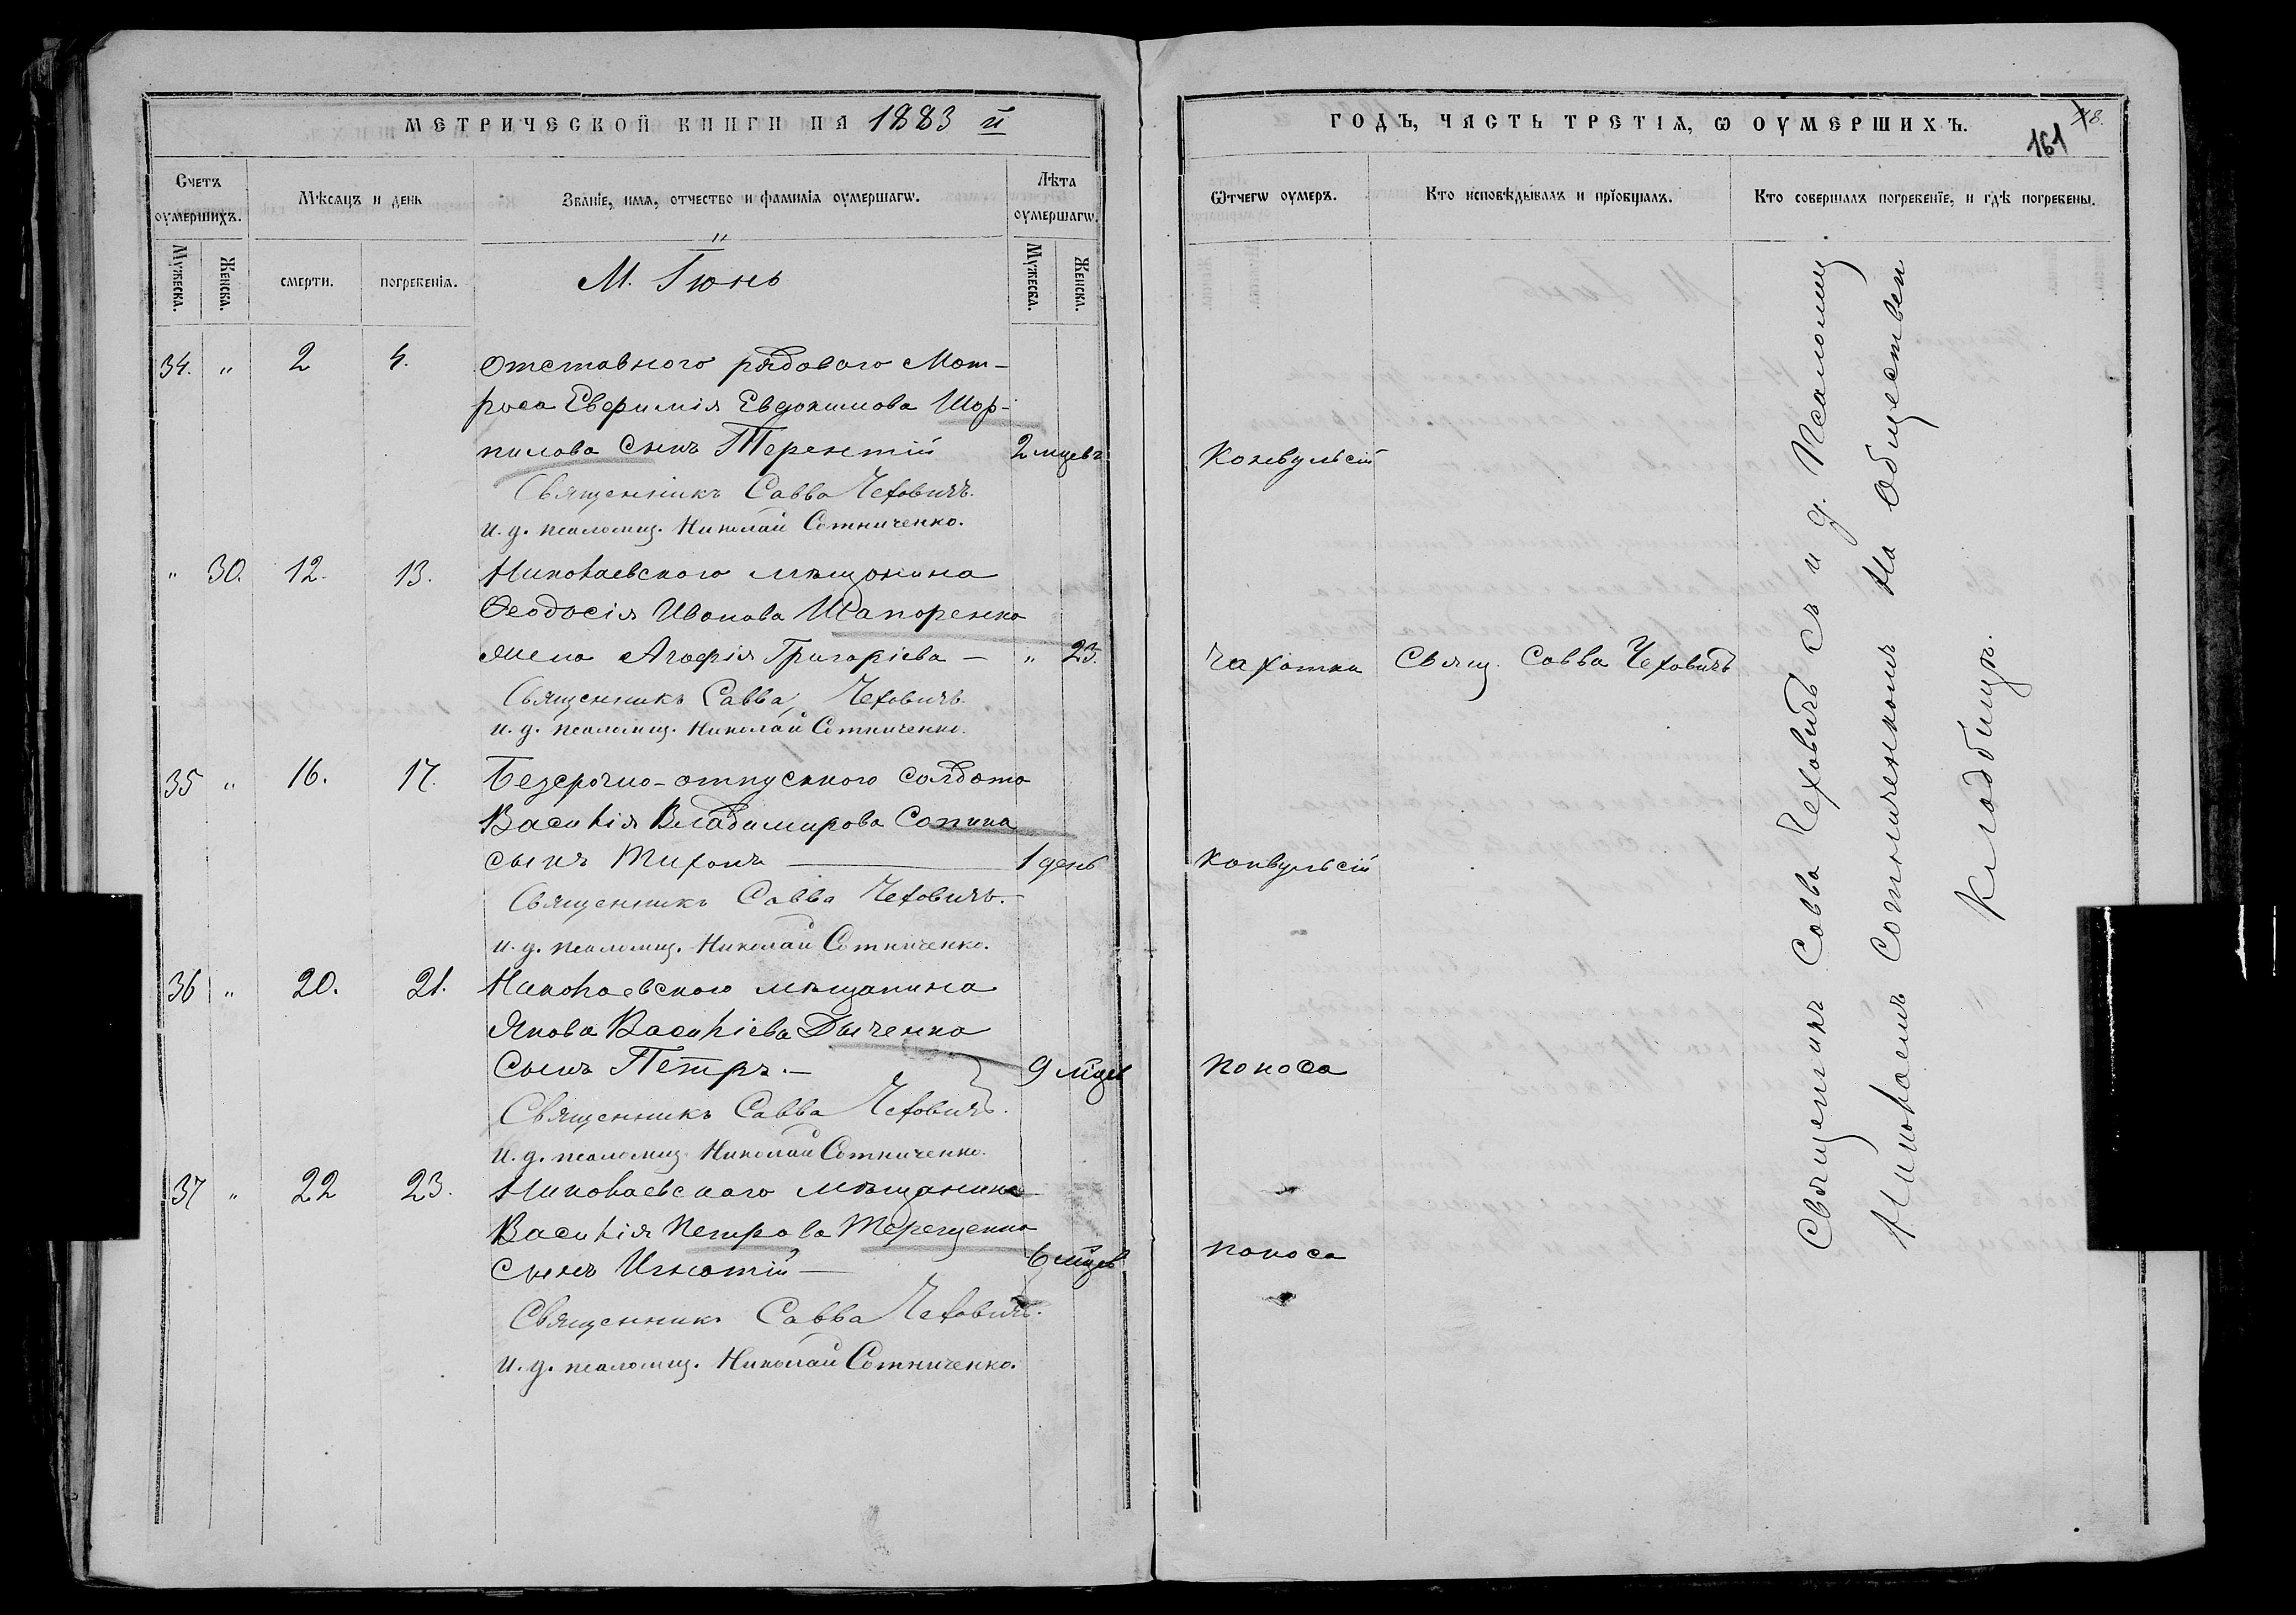 МЕТРИЧЕСКОЙ КНИГИ НА 1883 й
Счетъ оумершихъ.
Мѣсяцъ и день
Званіе, имя, отчество и фамилія оумершагѡ.
Лѣта оумершагѡ.
Мужеска.
Женска.
смерти.
погребенія.
М. Іюнь
Мужеска.
Женска.
34. " 2 4. Отставного рядоваго Мат-
роса Евфимія Евдокимова Шор-
пилова сынъ Терентій 2 мцевъ
Священникъ Савва Чеховичъ.
И. д. псаломщ. Николай Сотниченко.
" 30. 12. 13. Николаевского мѣщанина
Ѳеодосія Иванова Шапоренко
жена Агафія Григоріева — " 23.
Священникъ Савва Чеховичъ.
И. д. псаломщ. Николай Сотниченко.
35 " 16. 17. Безсрочно-отпускного солдата
Василія Владимирова Сопина
сынъ Тихонъ — 1 день
Священникъ Савва Чеховичъ.
И. д. псаломщ. Николай Сотниченко.
36 " 20. 21. Николаевского мѣщанина
Якова Василіева Дыченко
Сынъ Петръ. — 9 мцев
Священникъ Савва Чеховичъ.
И. д. псаломщ. Николай Сотниченко.
37 " 22 23. Николаевского мѣщанина
Василія Петрова Терещенко
Сынъ Игнатій — 6 мцев
Священникъ Савва Чеховичъ.
И. д. псаломщ. Николай Сотниченко.
ГОДЪ, ЧАСТЬ ТРЕТІЯ, Ѡ ОУМЕРШИХЪ.
18.
161
Ѿтчегѡ оумеръ.
Кто исповѣдывалъ и прїобщалъ.
Кто совершалъ погребенїе, и гдѣ погребены.
Конвульсій
Чахотки Свящ. Савва Чеховичъ
Конвульсій
Поноса
Поноса
Священникъ Савва Чеховичъ съ и д. Псаломщ
Николаемъ Сотниченкомъ На Обществен
Кладбищѣ.